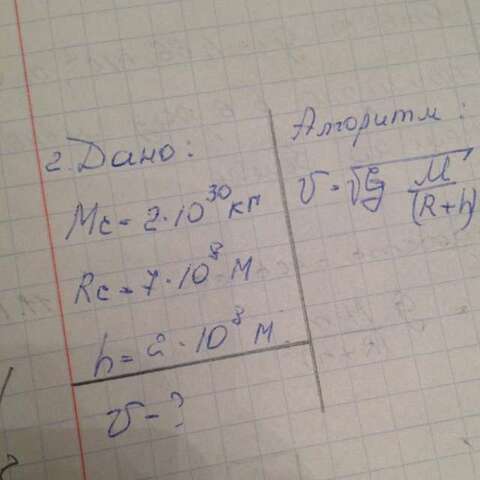 2. Дано:
Mc = 2 · 10³⁰ кг
Rc = 7 · 10⁸ м
h = 2 · 10⁸ м
v - ?
Алгоритм:
v = √G M/(R+h)